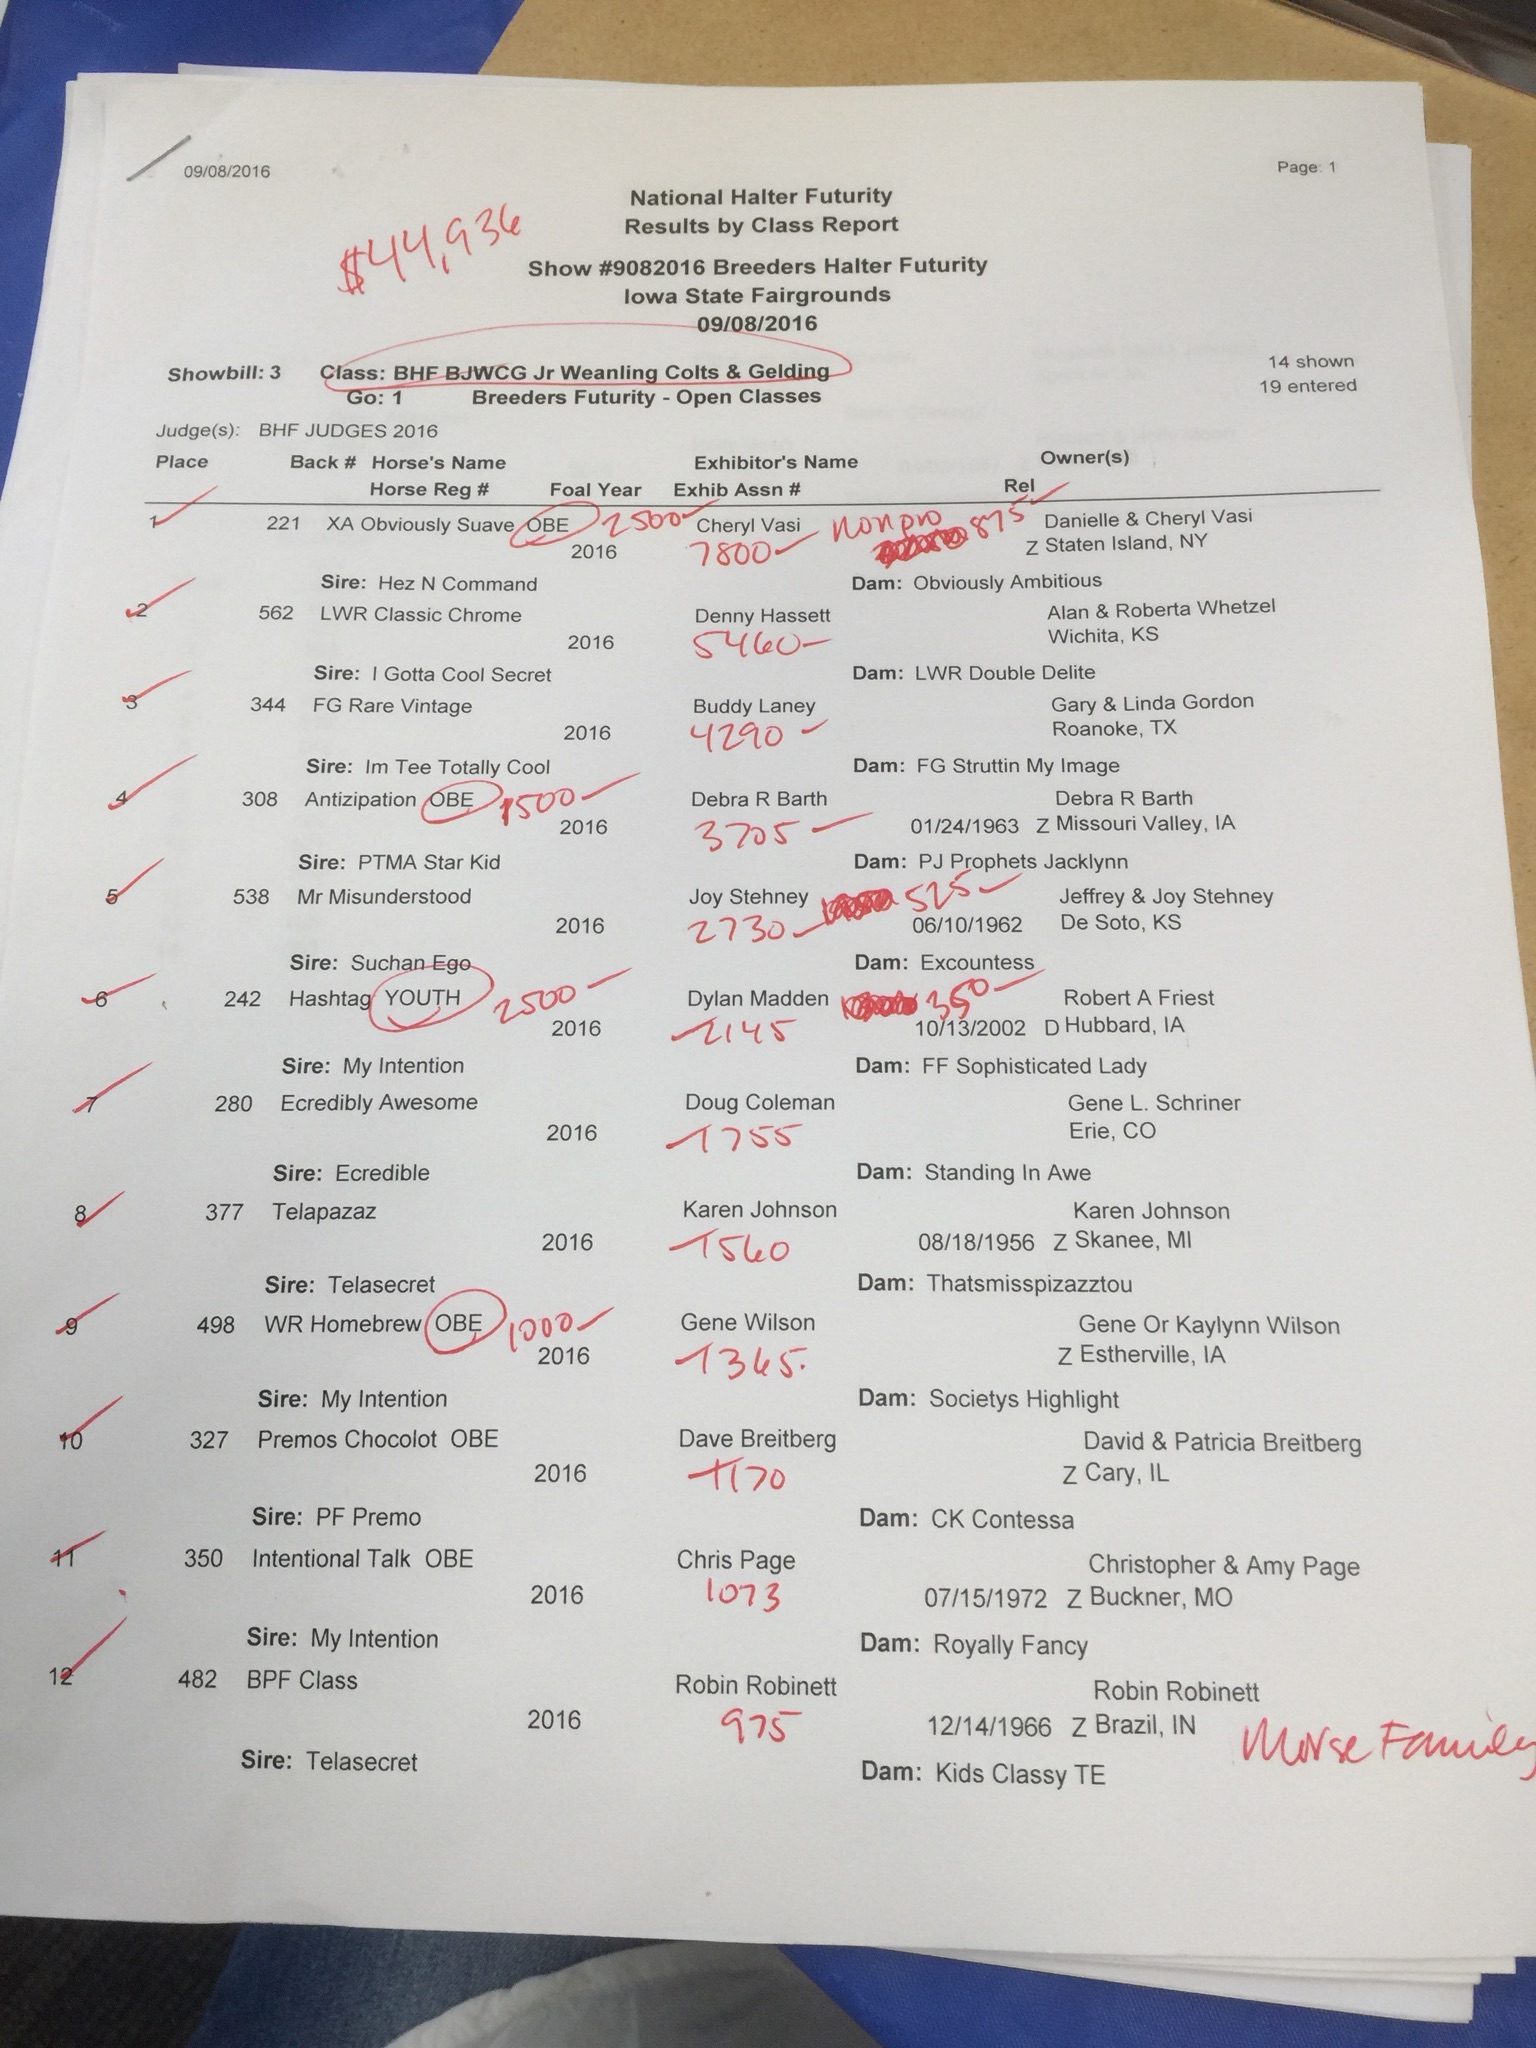 09/08/2016 Page: 1
National Halter Futurity
Results by Class Report
$44,936
Show #9082016 Breeders Halter Futurity
Iowa State Fairgrounds
09/08/2016
Showbill: 3 Class: BHF BJWCG Jr Weanling Colts & Gelding 14 shown
Go: 1 Breeders Futurity - Open Classes 19 entered
Judge(s): BHF JUDGES 2016
Place Back # Horse's Name Exhibitor's Name Owner(s)
Horse Reg # Foal Year Exhib Assn # Rel
1 221 XA Obviously Suave OBE 2500 Cheryl Vasi nonpro 875 Danielle & Cheryl Vasi
2016 7800 Z Staten Island, NY
Sire: Hez N Command Dam: Obviously Ambitious
2 562 LWR Classic Chrome Denny Hassett Alan & Roberta Whetzel
2016 5460 Wichita, KS
Sire: I Gotta Cool Secret Dam: LWR Double Delite
3 344 FG Rare Vintage Buddy Laney Gary & Linda Gordon
2016 4290 Roanoke, TX
Sire: Im Tee Totally Cool Dam: FG Struttin My Image
4 308 Antizipation OBE 1500 Debra R Barth Debra R Barth
2016 3705 01/24/1963 Z Missouri Valley, IA
Sire: PTMA Star Kid Dam: PJ Prophets Jacklynn
5 538 Mr Misunderstood Joy Stehney 525 Jeffrey & Joy Stehney
2016 2730 06/10/1962 De Soto, KS
Sire: Suchan Ego Dam: Excountess
6 242 Hashtag YOUTH 2500 Dylan Madden 350 Robert A Friest
2016 2145 10/13/2002 D Hubbard, IA
Sire: My Intention Dam: FF Sophisticated Lady
7 280 Ecredibly Awesome Doug Coleman Gene L. Schriner
2016 1755 Erie, CO
Sire: Ecredible Dam: Standing In Awe
8 377 Telapazaz Karen Johnson Karen Johnson
2016 1560 08/18/1956 Z Skanee, MI
Sire: Telasecret Dam: Thatsmisspizazztou
9 498 WR Homebrew OBE 1000 Gene Wilson Gene Or Kaylynn Wilson
2016 1365. Z Estherville, IA
Sire: My Intention Dam: Societys Highlight
10 327 Premos Chocolot OBE Dave Breitberg David & Patricia Breitberg
2016 1170 Z Cary, IL
Sire: PF Premo Dam: CK Contessa
11 350 Intentional Talk OBE Chris Page Christopher & Amy Page
2016 1073 07/15/1972 Z Buckner, MO
Sire: My Intention Dam: Royally Fancy
12 482 BPF Class Robin Robinett Robin Robinett
2016 975 12/14/1966 Z Brazil, IN Morse Family
Sire: Telasecret Dam: Kids Classy TE